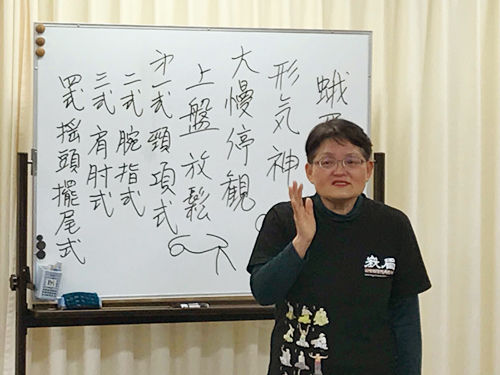 蛾
形気神
大慢停観
上盤放鬆
第一式頸項式
二式腕指式
三式肩肘式
四式摇頭擺尾式